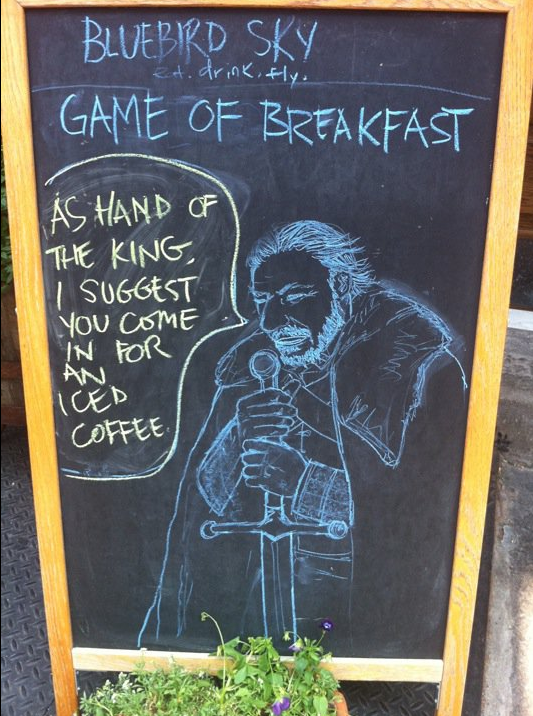 BLUEBIRD SKY
eat. drink. fly.
GAME OF BREAKFAST
AS HAND OF
THE KING,
I SUGGEST
YOU COME
IN FOR
AN
ICED
COFFEE.